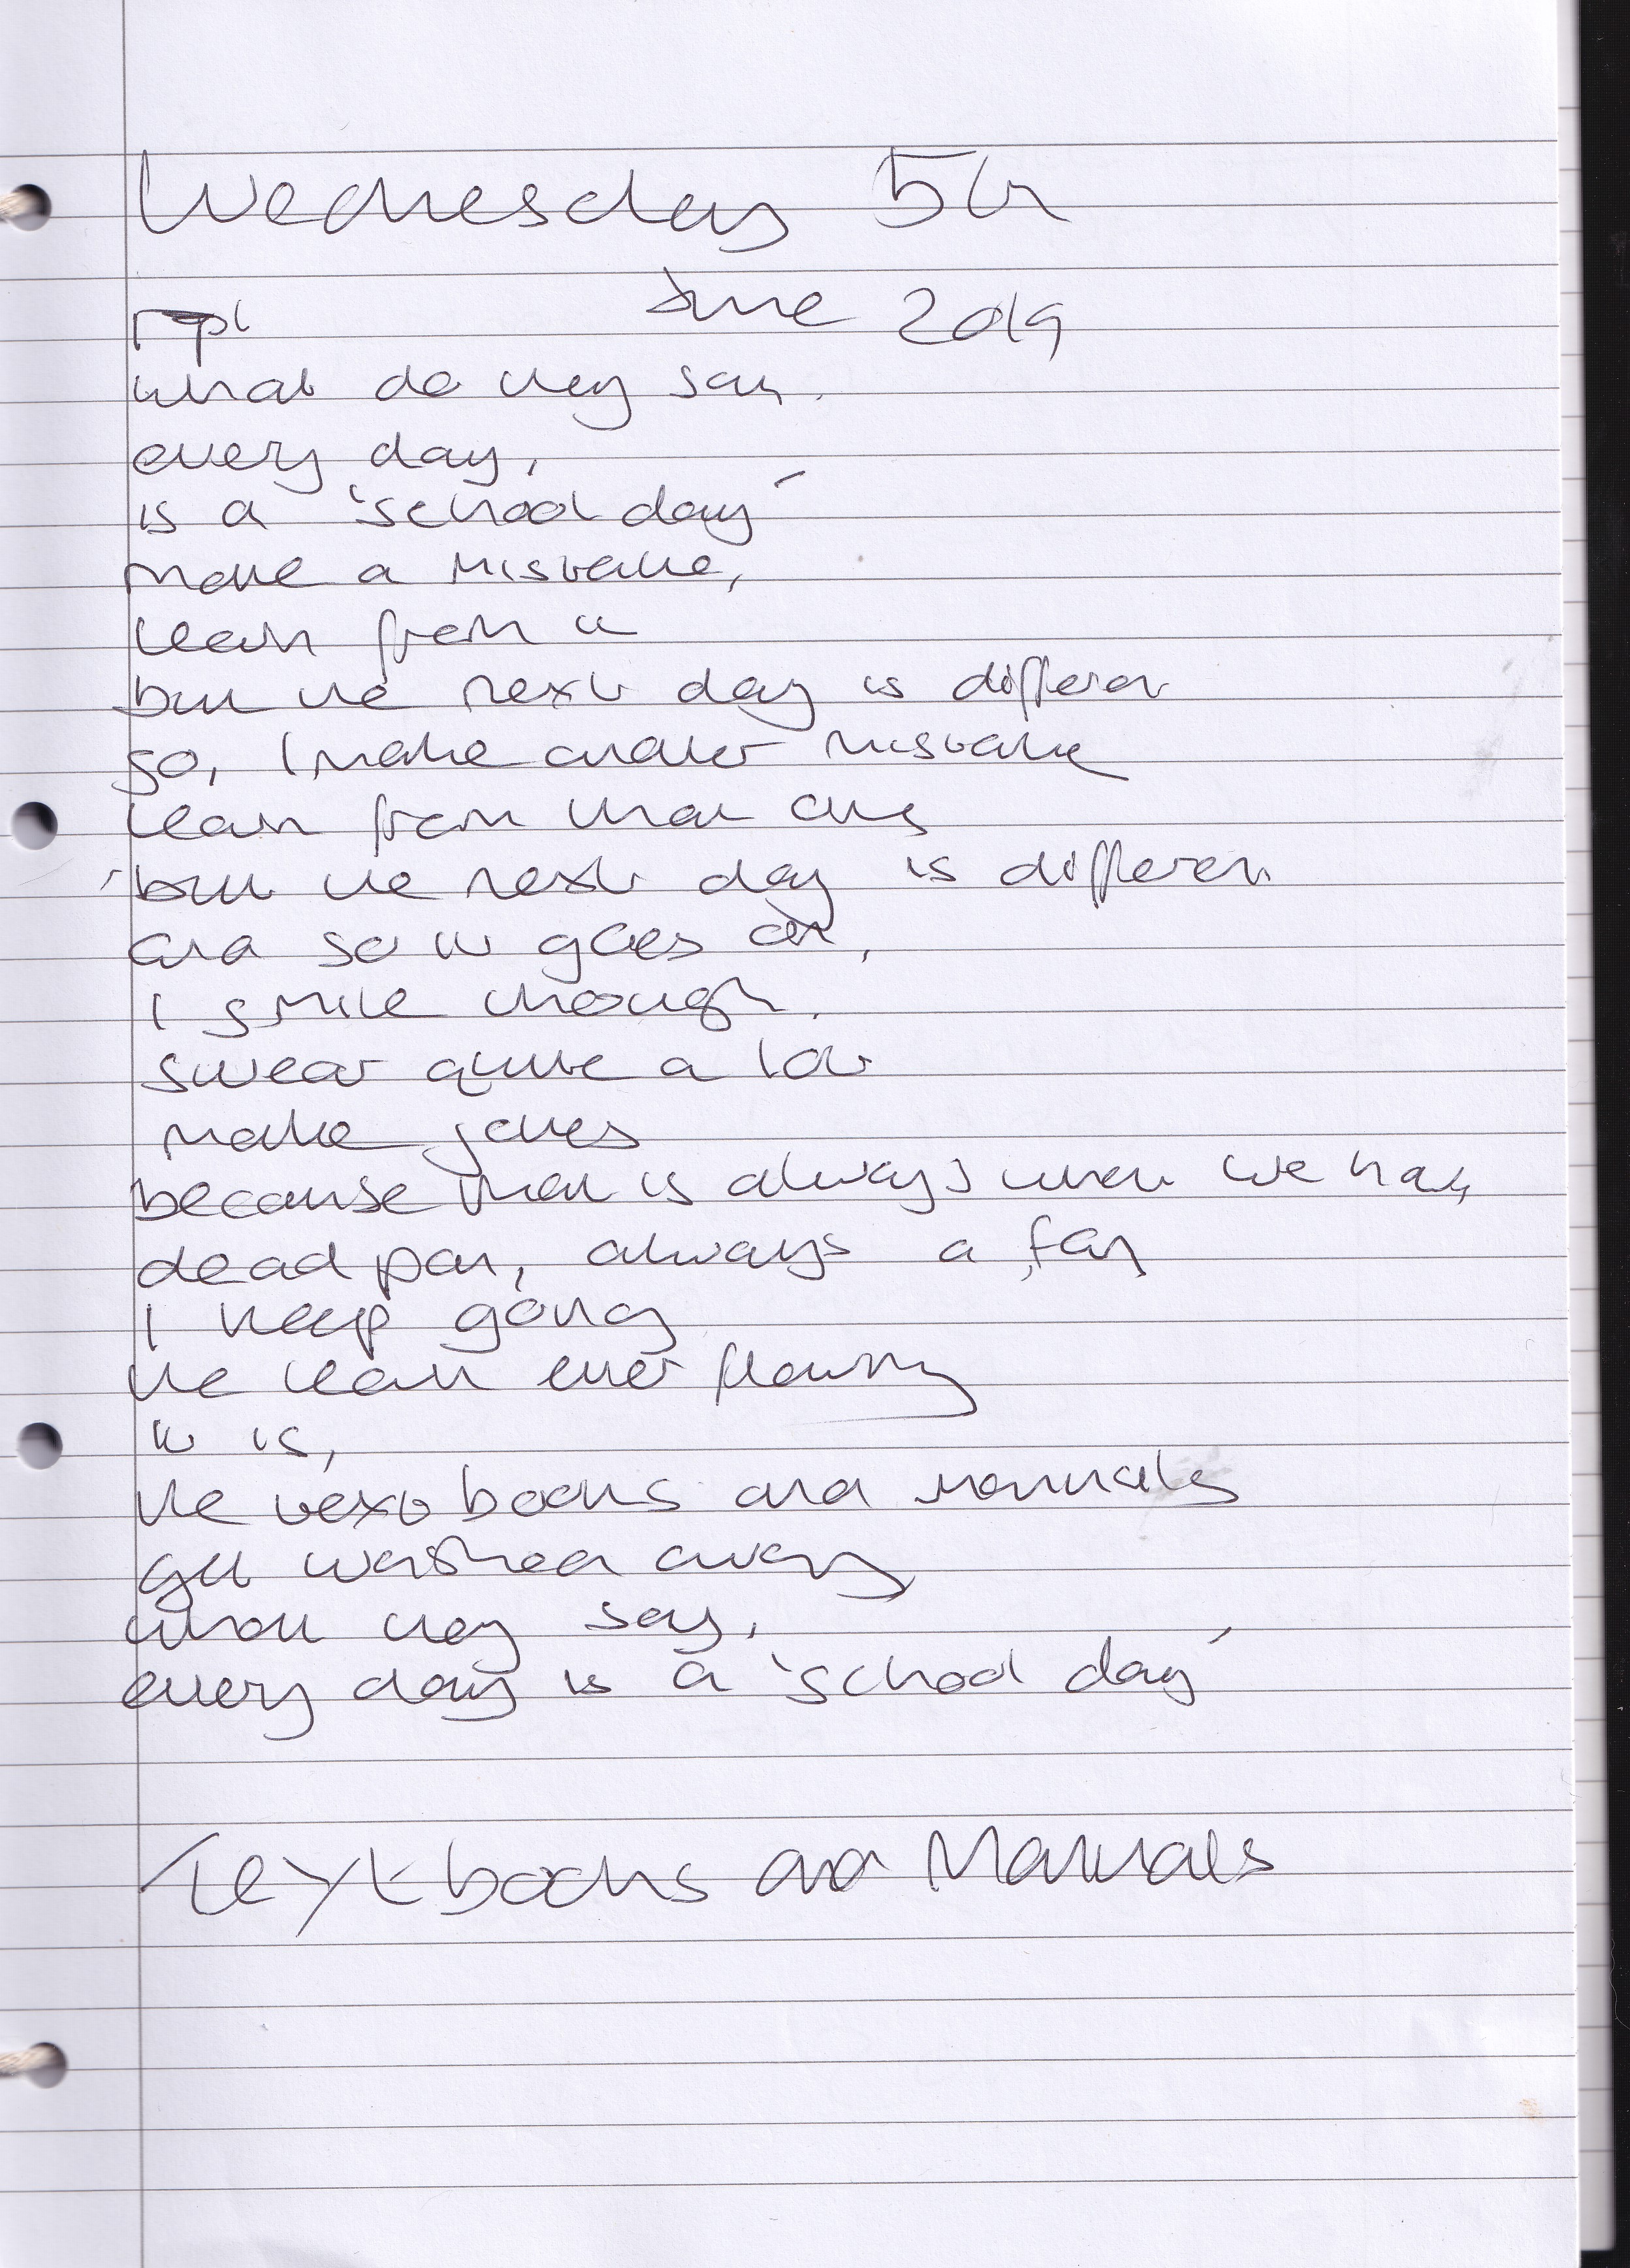 Wednesday 5th
June 2019
what do they say.
every day,
is a 'school day'
make a mistake,
learn from it
but the next day is different
so, I make another mistake
learn from that one
but the next day is different
and so it goes on,
I smile though.
swear quite a lot
make jokes
because that is always where we hay,
deadpan, always a
I keep going
the learn ever flowing
it is,
the text books and manuals
get washed away
what they say,
every day is a 'school day'
Textbooks and Manuals